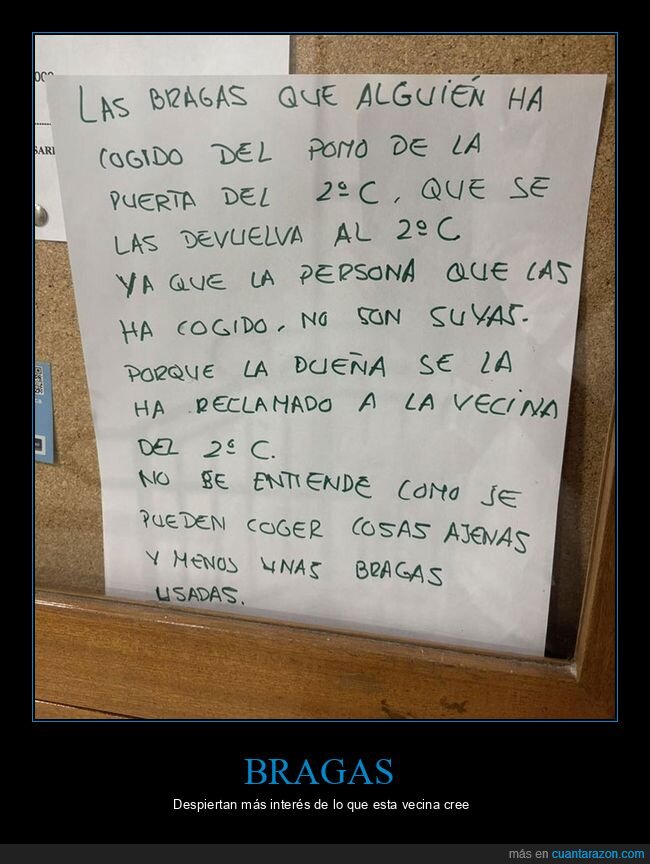 OCO
SARI
LAS BRAGAS QUE ALGUIÉN HA
COGIDO DEL POMO DE LA
PUERTA DEL 2º C, QUE SE
LAS DEVUELVA AL 2º C
YA QUE LA PERSONA QUE LAS
HA COGIDO, NO SON SUYAS.
PORQUE LA DUEÑA SE LA
HA RECLAMADO A LA VECINA
DEL 2º C.
NO SE ENTIENDE COMO SE
PUEDEN COGER COSAS AJENAS
Y MENOS UNAS BRAGAS
USADAS.
BRAGAS
Despiertan más interés de lo que esta vecina cree
más en cuantarazon.com